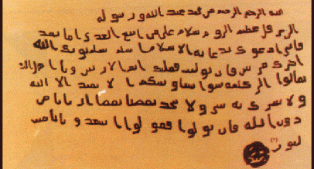 بسم الله الرحمن الرحيم من محمد عبد الله ورسوله
الى هرقل عظيم الروم سلام على من اتبع الهدى اما بعد
فانى ادعوك بدعاية الاسلام اسلم تسلم يوتك الله
اجرك مرتين فان توليت فعليك اثم الاريسين ويا اهل الك
تعالوا الى كلمة سوا بيننا وبينكم الا نعبد الا الله
ولا نشرك به شيا ولا يتخذ بعضنا بعضا اربابا من
دون الله فان تولوا فقولوا اشهدوا بانا مس
لمون